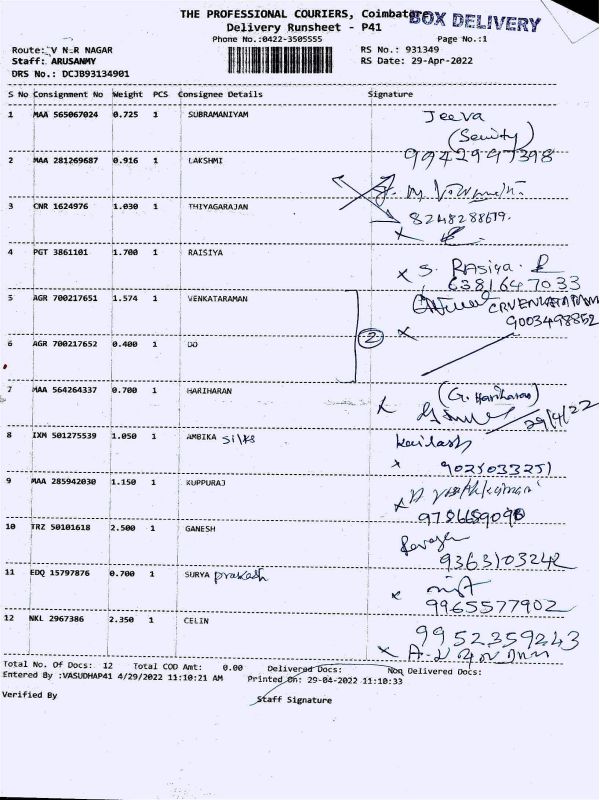 THE PROFESSIONAL COURIERS, Coimbatore
BOX DELIVERY
Delivery Runsheet - P41
Phone No.:0422-3505555 Page No.:1
Route: V N.R NAGAR RS No.: 931349
Staff: ARUSANMY RS Date: 29-Apr-2022
DRS No.: DCJB93134901
S No Consignment No Weight PCS Consignee Details Signature
1 MAA 565067024 0.725 1 SUBRAMANIYAM Jeeva
9942947398
2 MAA 281269687 0.916 1 LAKSHMI
3 CNR 1624976 1.030 1 THIYAGARAJAN 8248288679.
4 PGT 3861101 1.700 1 RAISIYA S. RASiya. R
6381647033
5 AGR 700217651 1.574 1 VENKATARAMAN CRVENKATARAMAN
9003498852
2
6 AGR 700217652 0.400 1 DO
7 MAA 564264337 0.700 1 HARIHARAN (G. Hariharan)
29/4/22
8 IXM 501275539 1.050 1 AMBIKA silks Kailash
9025033251
9 MAA 285942030 1.150 1 KUPPURAJ
10 TRZ 50101618 2.500 1 GANESH
9363103242
11 EDQ 15797876 0.700 1 SURYA prakash
9965577902
12 NKL 2967386 2.350 1 CELIN 9952359243
Total No. Of Docs: 12 Total COD Amt: 0.00 Delivered Docs: Non Delivered Docs:
Entered By :VASUDHAP41 4/29/2022 11:10:21 AM Printed On: 29-04-2022 11:10:33
Verified By Staff Signature